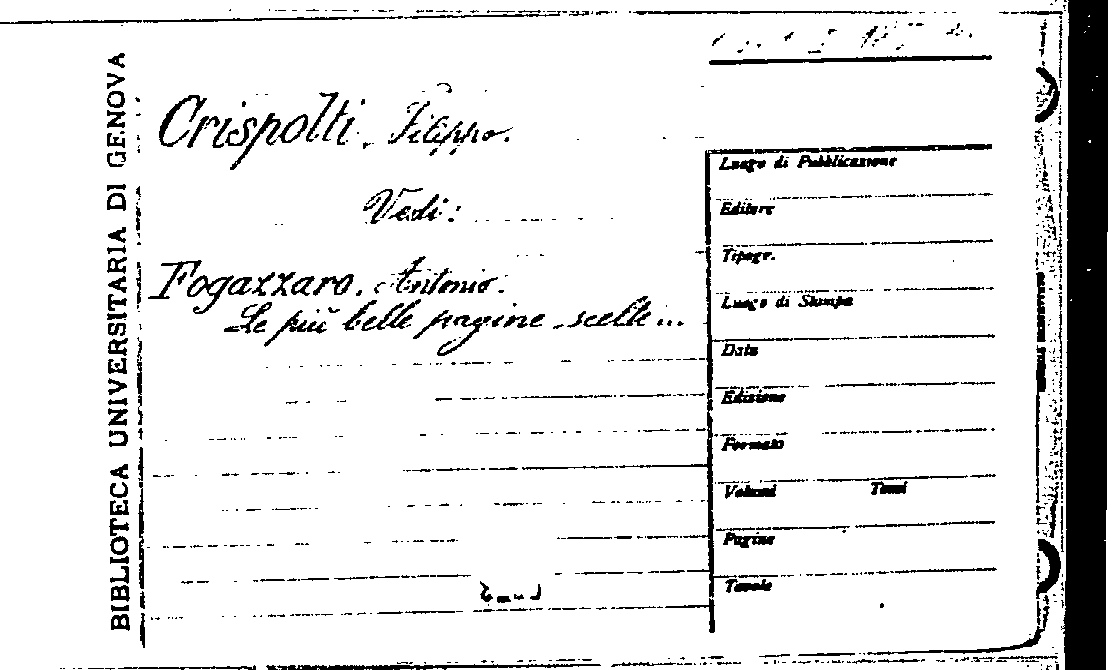 BIBLIOTECA UNIVERSITARIA DI GENOVA
Crispolti, Filippo.
Vedi:
Fogazzaro, Antonio.
Le più belle pagine scelte...
Luogo di Pubblicazione
Editore
Tipogr.
Luogo di Stampa
Data
Edizione
Formato
Volumi Tomi
Pagine
Tavole